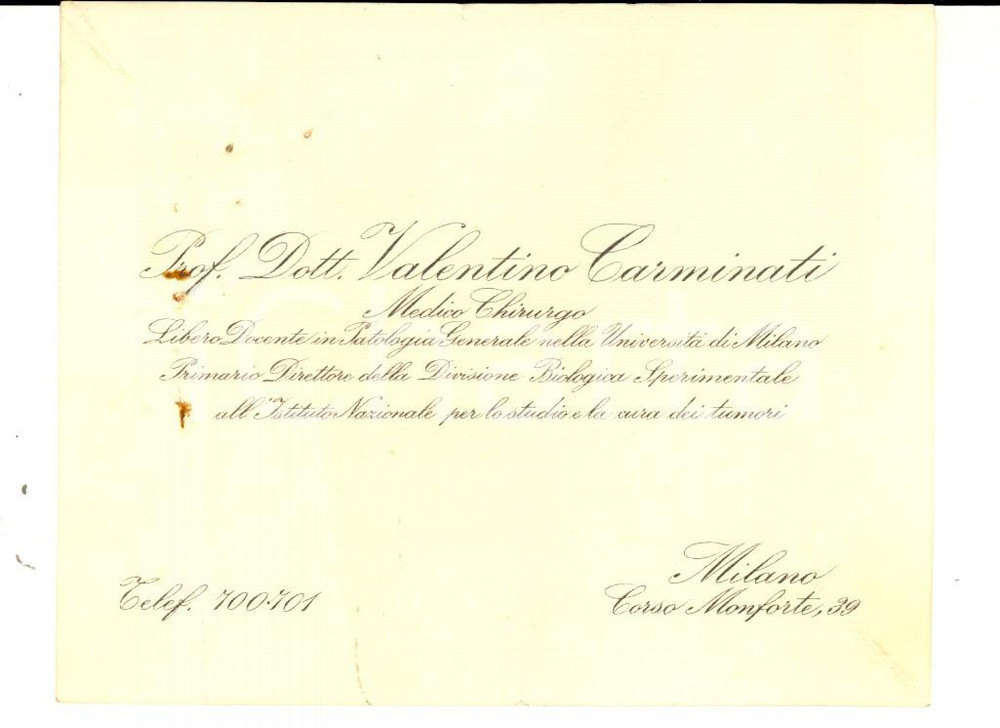 Prof. Dott. Valentino Carminati
Medico Chirurgo
Libero Docente in Patologia Generale nella Università di Milano
Primario Direttore della Divisione Biologica Sperimentale
all'Istituto Nazionale per lo studio e la cura dei tumori
Milano
Telef. 700-701
Corso Monforte, 39